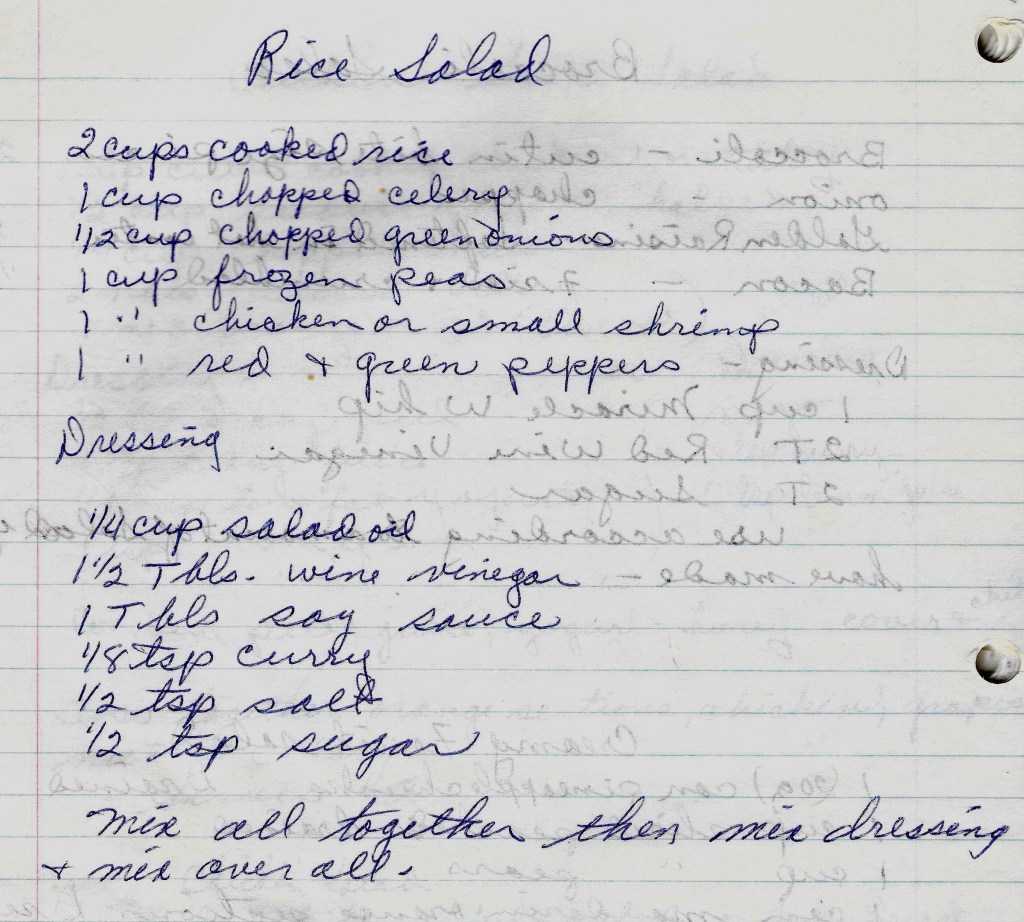 Rice Salad
2 cups cooked rice
1 cup chopped celery
1/2 cup chopped green onions
1 cup frozen peas
1 " chicken or small shrimp
1 " red + green peppers
Dressing
1/4 cup salad oil
1 1/2 Tbls. wine vinegar
1 Tbls soy sauce
1/8 tsp curry
1/2 tsp salt
1/2 tsp sugar
Mix all together then mix dressing
+ mix over all.